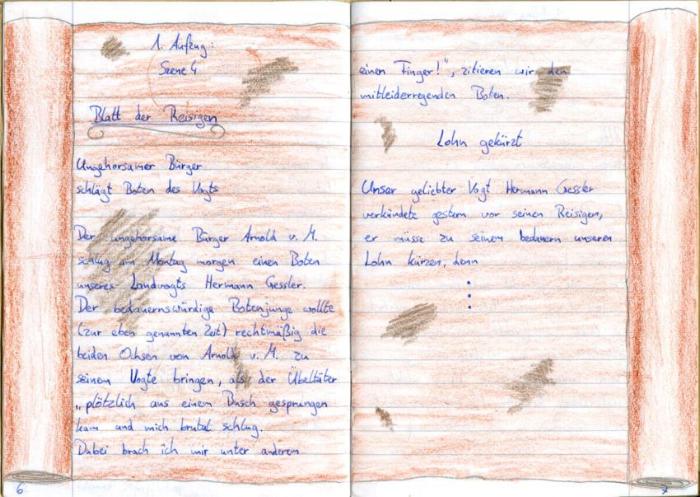 1. Aufzug:
Szene 4
Blatt der Reisigen
Ungehorsamer Bürger
schlägt Boten des Vogts
Der ungehorsame Bürger Arnold v. M.
schlug am Montag morgen einen Boten
unseres Landvogts Hermann Gessler.
Der bedauernswürdige Botenjunge wollte
(zur eben genannten Zeit) rechtmäßig die
beiden Ochsen von Arnold v. M. zu
seinem Vogte bringen, als der Übeltäter
„plötzlich aus einem Busch gesprungen
kam und mich brutal schlug.
Dabei brach ich mir unter anderem
6
einen Finger!", zitieren wir den
mitleiderregenden Boten.
Lohn gekürzt
Unser geliebter Vogt Hermann Gessler
verkündete gestern vor seinen Reisigen,
er müsse zu seinem bedauern unseren
Lohn kürzen, denn
7